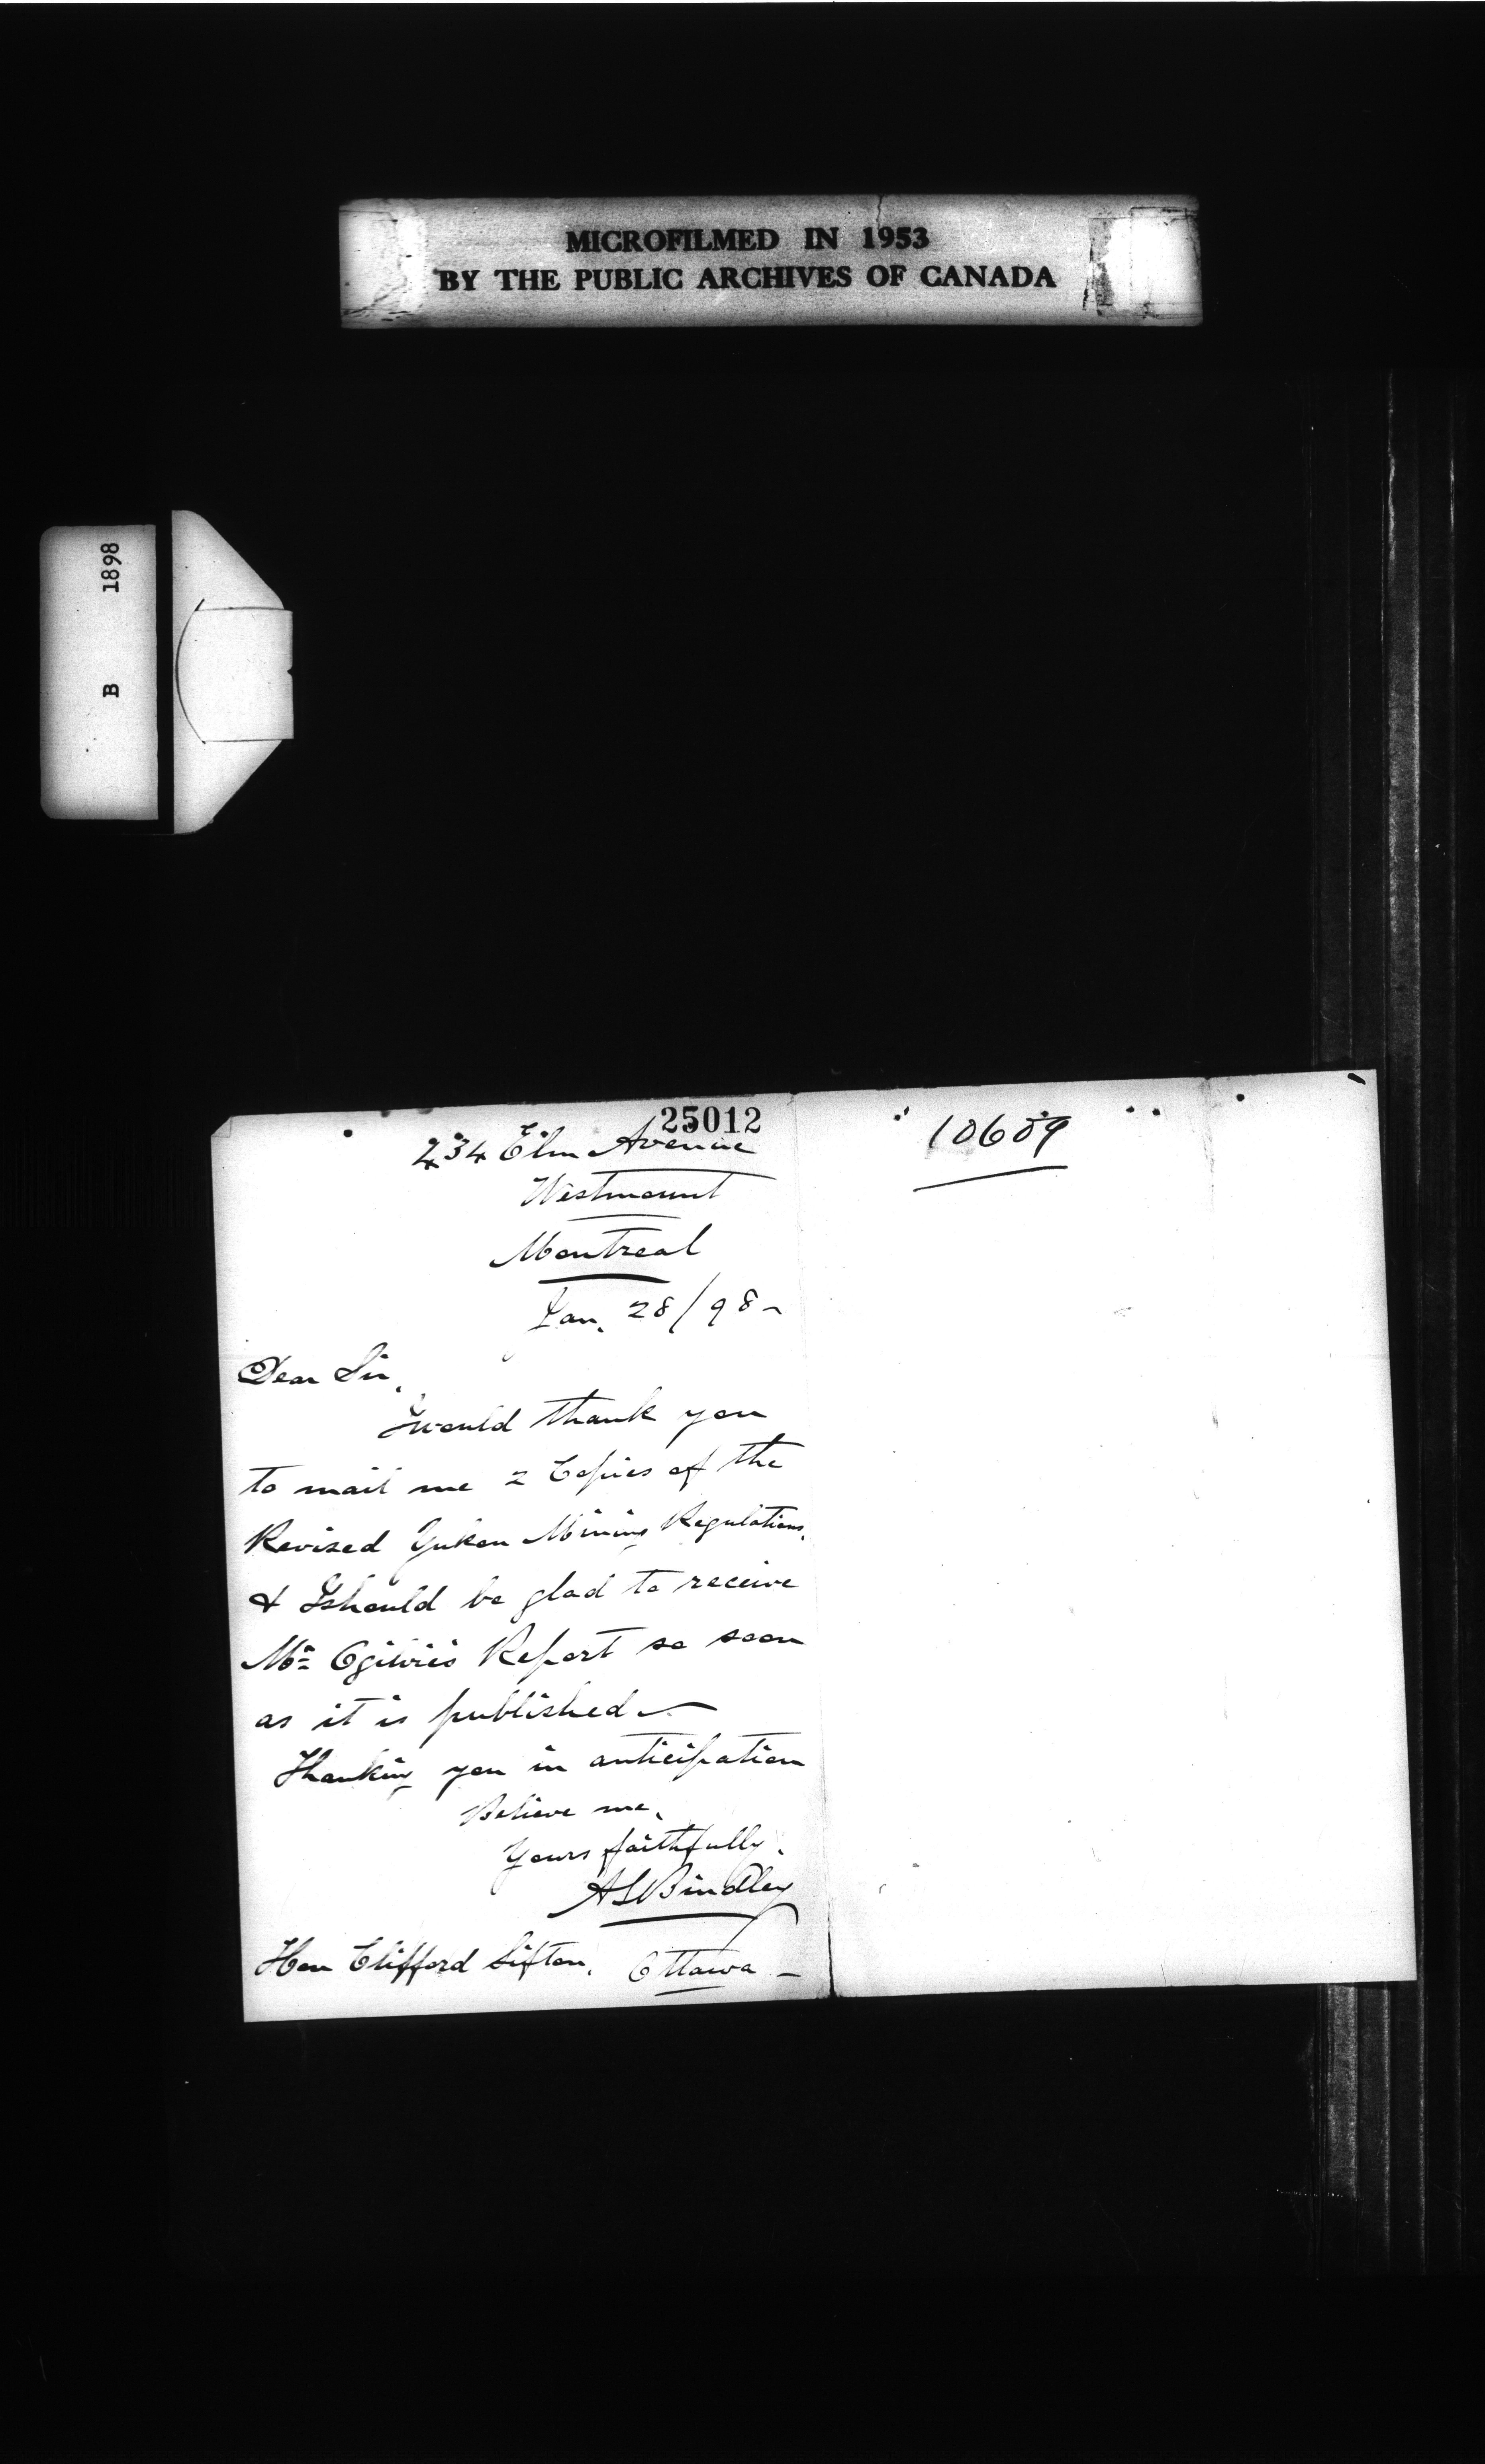 MICROFILMED IN 1953
BY THE PUBLIC ARCHIVES OF CANADA
B 1898
25012
234 Elm Avenue
Westmount
Montreal
Jan. 28/98-
Dear Sir,
I would thank you
to mail me 2 Copies of the
Revised Yukon Mining Regulations.
& I should be glad to receive
Mr Ogilvie's Report so soon
as it is published -
Thanking you in anticipation
Believe me,
Yours faithfully.
ASBindley
Hon Clifford Sifton. Ottawa -
10609